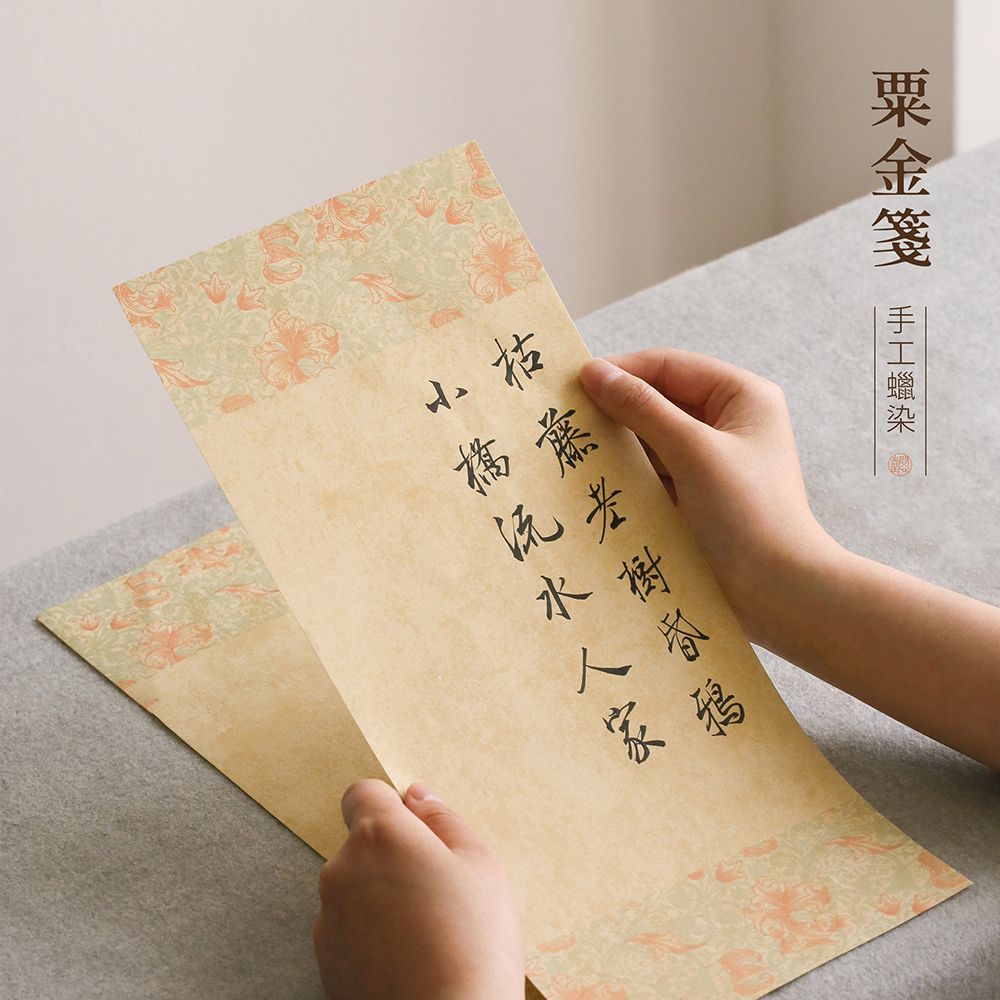 粟金箋
手工蠟染
枯藤老樹昏鴉
小橋流水人家